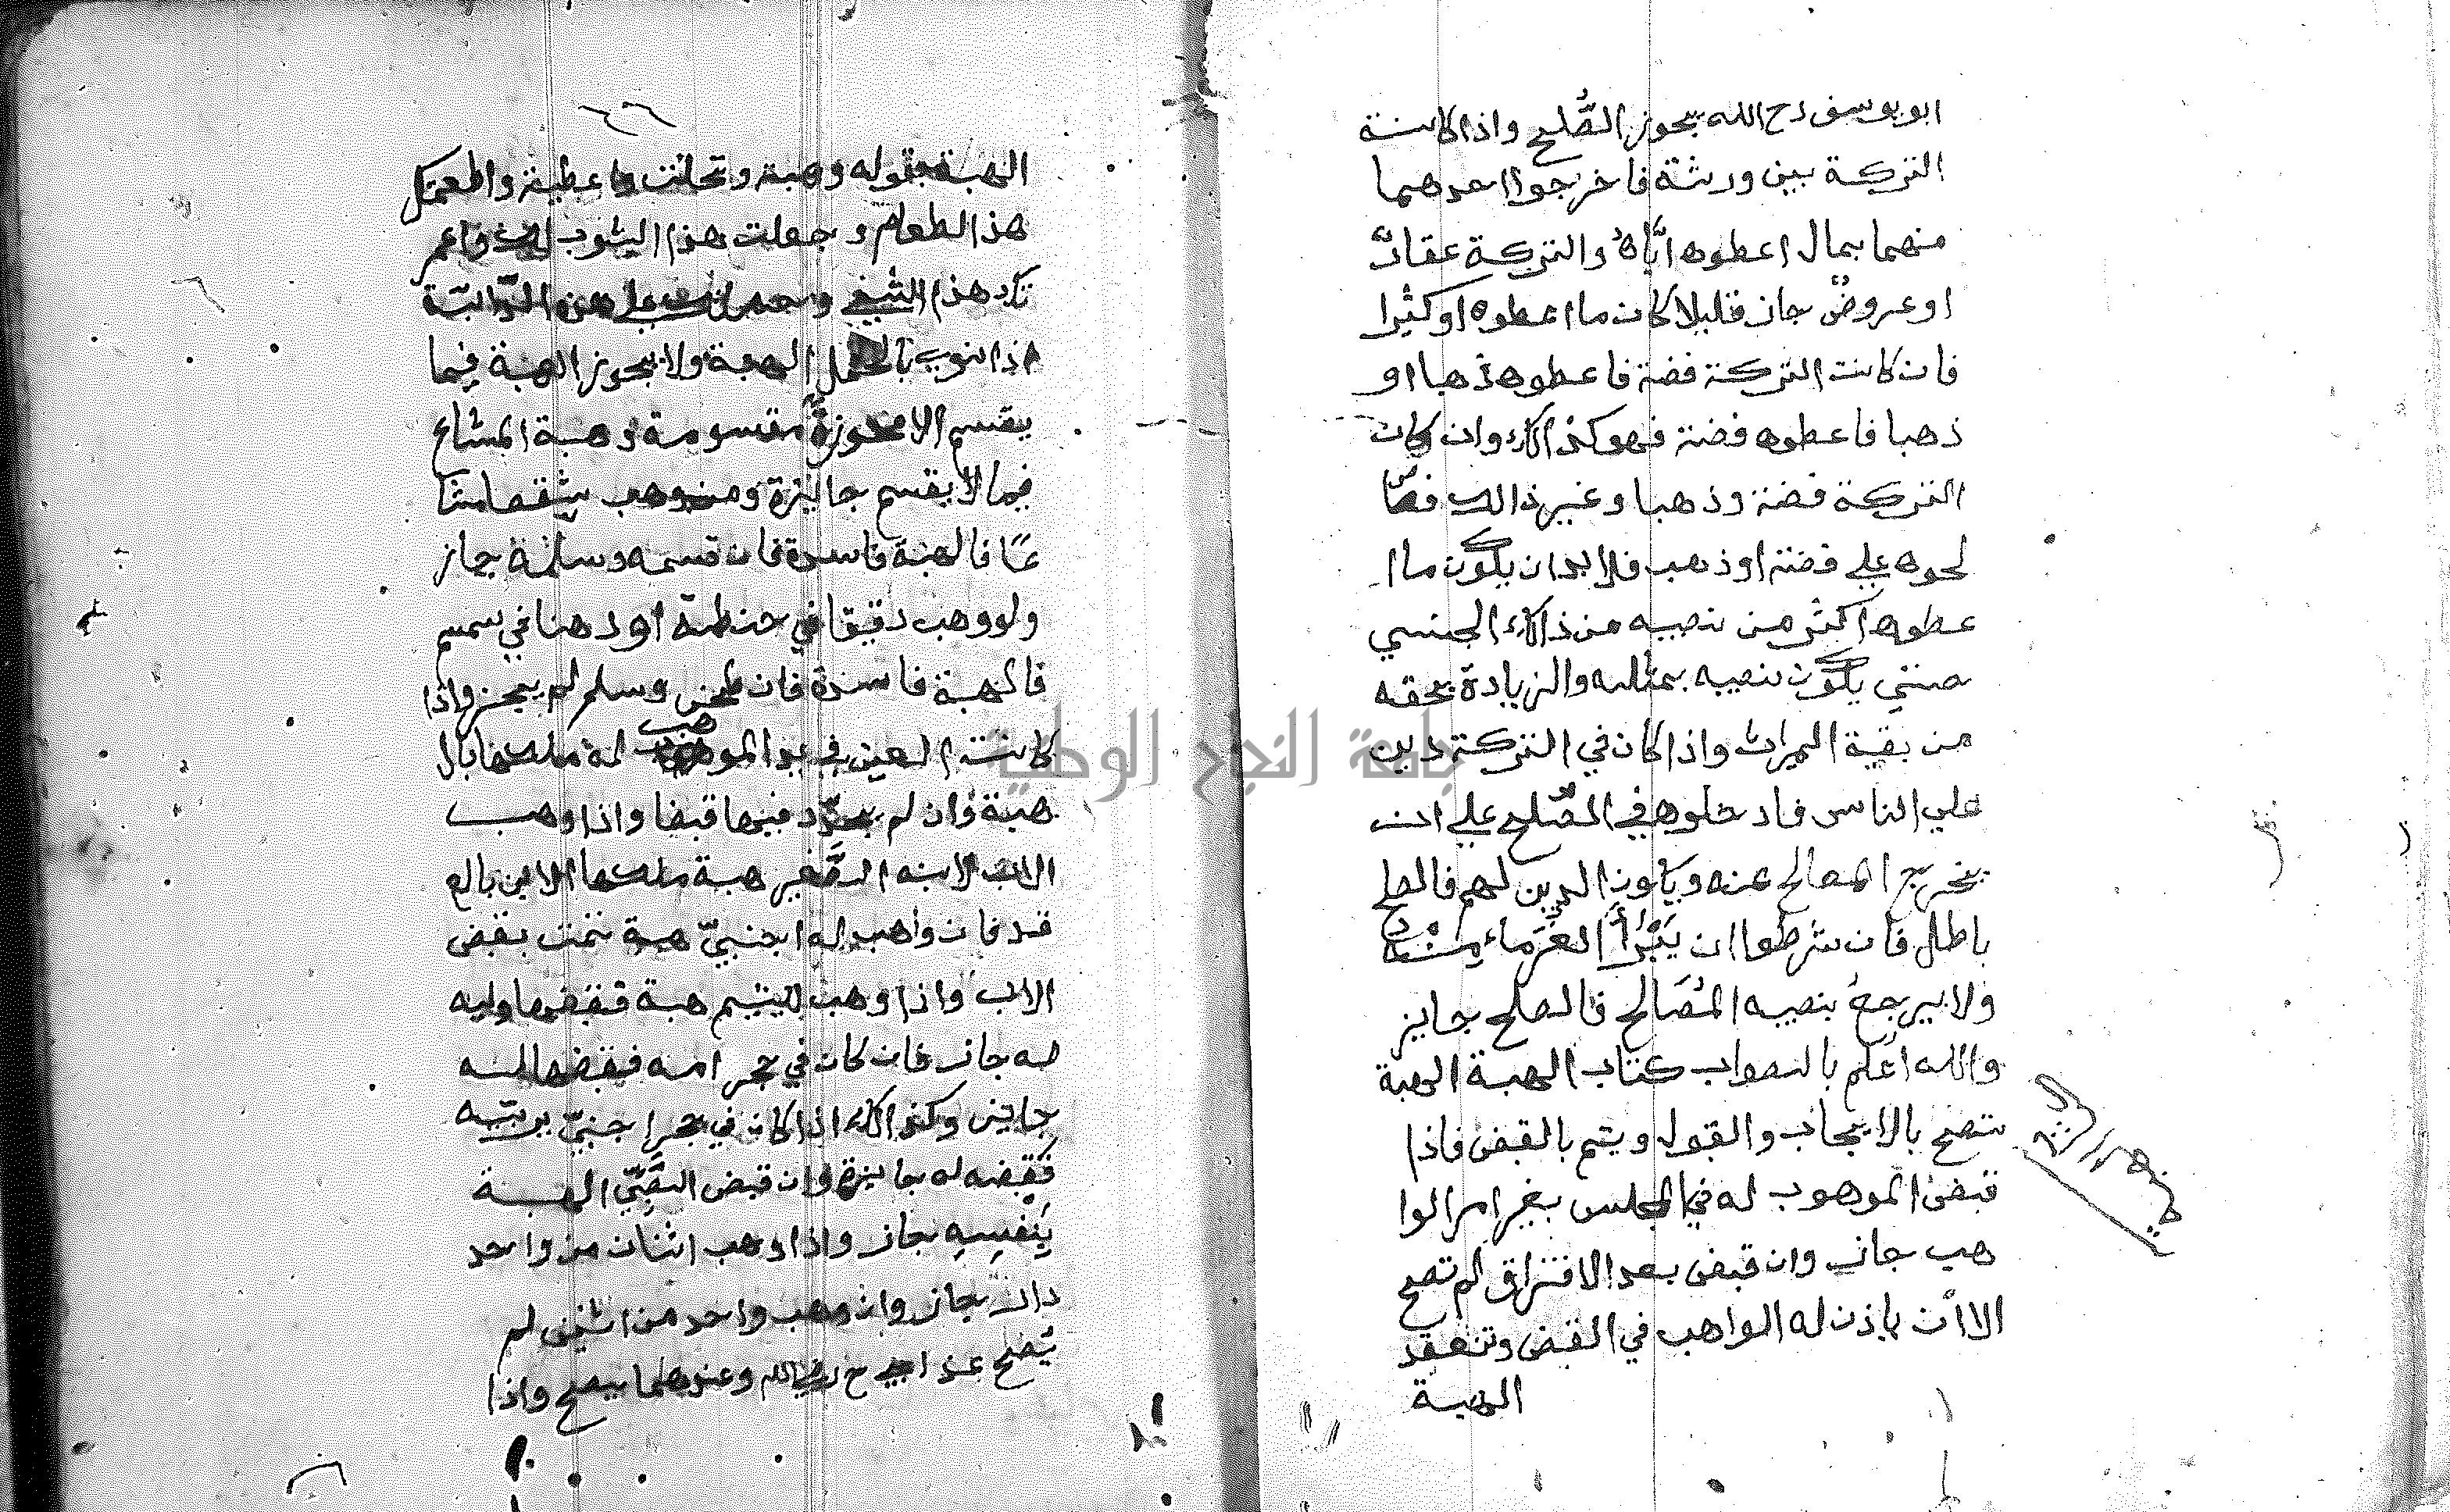 ابو يوسف رح الله يجوز الصُّلح واذا كانت
التركة بين ورثة فاخرجوا احدهما
منهما بمال اعطوه ايّاهُ والتركة عقارٌ
او عروضٌ جاز قليلا كان ما اعطوه او كثيرا
فان كانت التركة فضة فاعطوه ذهبا او
ذهبا فاعطوه فضة فهو كذالك وان كان
التركة فضة وذهبا وغير ذالك فصا
لحوه علي فضة او ذهب فلا بد ان يكون ما ا
عطوه اكثر من نصيبه من ذالك الجنسي
حتي يكون نصيبه بمثله والزيادة بحقه
من بقية الميراث واذا كان في التركة دين
علي الناس فادخلوه في الصّلح علي ان
يخرج المصالح عنه ويكون الدين لهم فالصلح
باطل فان شرطوا ان يَبْرَأَ الغُرَمَاء مِنْهُ
ولا يرجعُ بنصيبه المُصَالح فالصلح جايز
والله اعلم بالصواب كتاب الهبة الهبة
تصح بالايجاب والقبول ويتم بالقبض فاذا
قبض الموهوب له في المجلس بغير امر الوا
هب جاز وان قبض بعد الافتراق لم تصح
الا أن ياذن له الواهب في القبض وتنعقد
الهبة
الهبة بقوله وهبة ونحلت واعطية واطعمتك
هذا الطعام و جعلت هذا الثوب لك واعمر
تك هذا الشيئ و علي هذه الدّابّة
اذا نوي بالحمل الهبة ولا يجوز الهبة فيما
يقسم الا محوزةً مقسومة وهبة المشاع
فيما لا يقسم جايزة ومن وهب شقصا مشا
عًا فالهبة فاسدة فان قسمه وسلمه جاز
ولو وهب دقيقا في حنطة او دهنا في سمسم
فالهبة فاسدة فان طحن وسلم لم يجز واذا
كانت العين في يد الموهوب له ملكها بال
هبة وان لم يجدّد فيها قبضا واذا وهب
الاب لابنه الصَّغير هبة ملكها الابن بالع
قد فان واهب له اجنبيّ هبة تمت بقبض
الاب واذا وهب لليتيم هبة فقبضها وليه
له جاز فان كان في حجر امه فقبضها له
جايز وكذالك اذا كان في حجر اجنبيّ يربّيه
فقبضه له جايزة وان قبض الصَّبيّ الهبة
بنفسِه جاز واذا وهب اثنان من واحد
دارا جاز وان وهب واحد من اثنين لم
تصح عند ابي ح رضي الله وعندهما يصح واذا